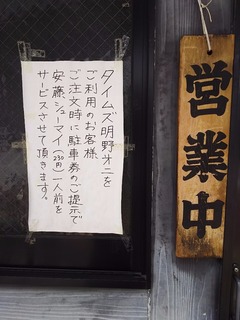 タイムズ明野才二を
ご利用のお客様
ご注文時に駐車券のご提示で
安藤シューマイ(230円)一人前を
サービスさせて頂きます。
営業中